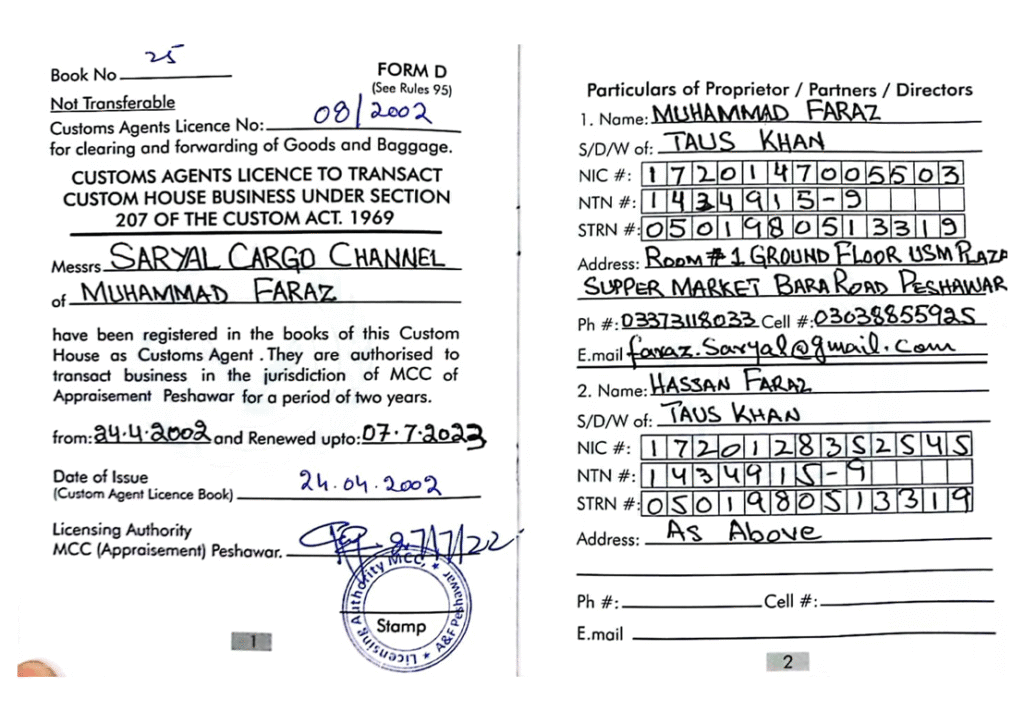 Book No 25
FORM D
(See Rules 95)
Not Transferable
Customs Agents Licence No: 08/2002
for clearing and forwarding of Goods and Baggage.
CUSTOMS AGENTS LICENCE TO TRANSACT
CUSTOM HOUSE BUSINESS UNDER SECTION
207 OF THE CUSTOM ACT. 1969
Messrs SARYAL CARGO CHANNEL
of MUHAMMAD FARAZ
have been registered in the books of this Custom
House as Customs Agent . They are authorised to
transact business in the jurisdiction of MCC of
Appraisement Peshawar for a period of two years.
from: 24.4.2002 and Renewed upto: 07.7.2023
Date of Issue
(Custom Agent Licence Book) 24.04.2002
Licensing Authority
MCC (Appraisement) Peshawar. 27/7/22
Licensing Authority MCC, A&F Peshawar
Stamp
1
Particulars of Proprietor / Partners / Directors
1. Name: MUHAMMAD FARAZ
S/D/W of: TAUS KHAN
NIC #: 1720147005503
NTN #: 1434915-9
STRN #: 0501980513319
Address: ROOM # 1 GROUND FLOOR USM PLAZA
SUPPER MARKET BARA ROAD PESHAWAR
Ph #: 03373118033 Cell #: 03038855925
E.mail faraz.saryal@gmail.com
2. Name: HASSAN FARAZ
S/D/W of: TAUS KHAN
NIC #: 1720128352545
NTN #: 1434915-9
STRN #: 0501980513319
Address: As Above
Ph #: Cell #:
E.mail
2